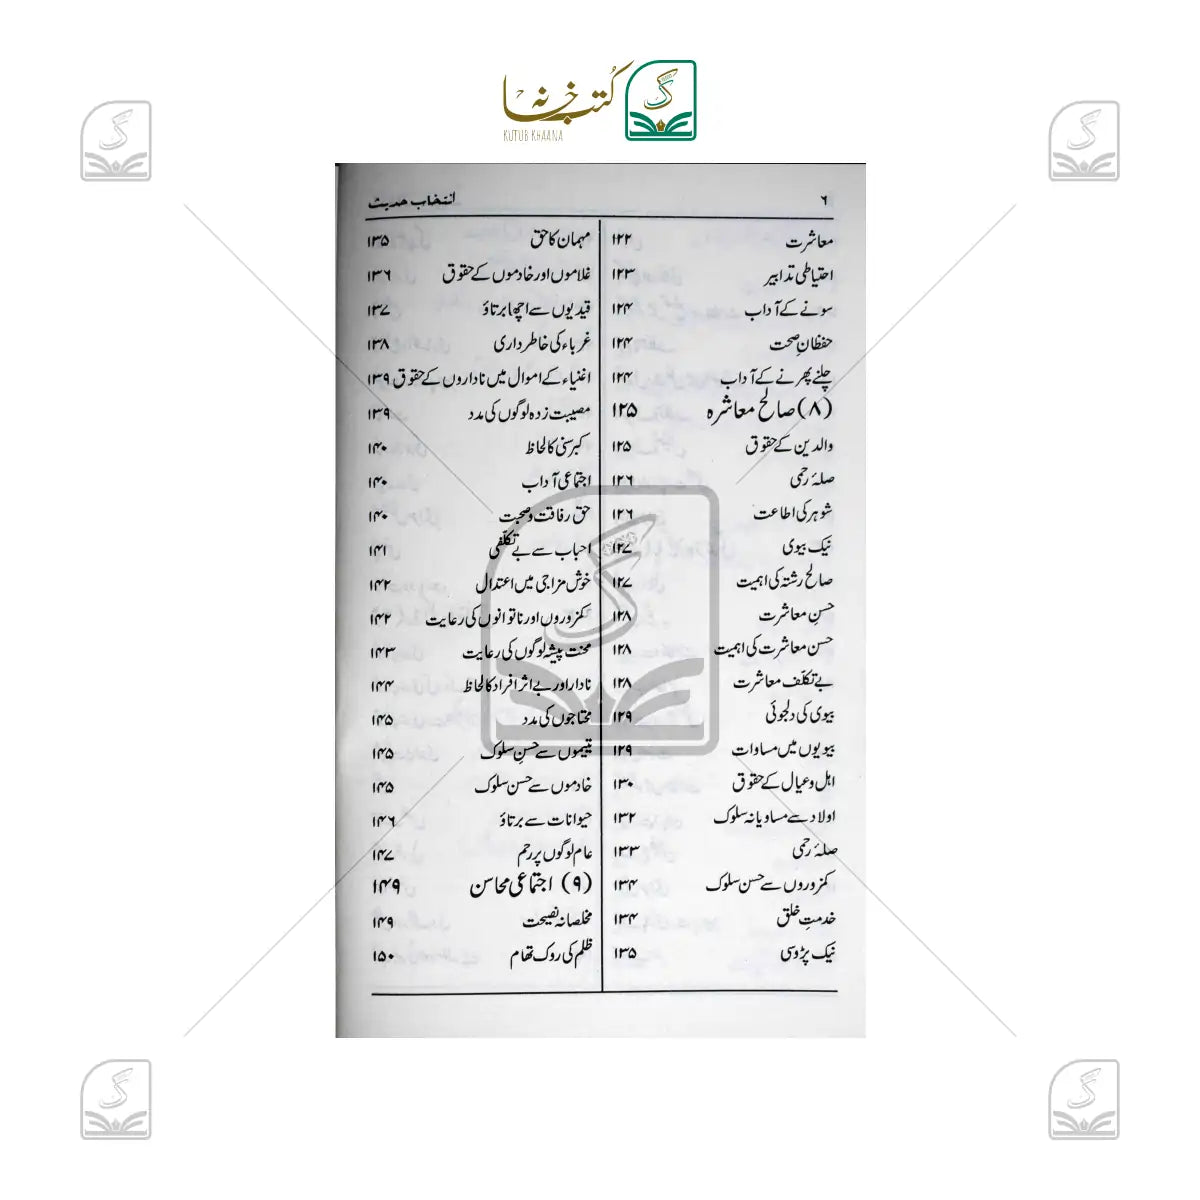 کتب خانہ
KUTUB KHAANA
۶
انتخاب حدیث
معاشرت ۱۲۲
احتیاطی تدابیر ۱۲۳
سونے کے آداب ۱۲۴
حفظانِ صحت ۱۲۴
چلنے پھرنے کے آداب ۱۲۴
(۸) صالح معاشرہ ۱۲۵
والدین کے حقوق ۱۲۵
صلۂ رحمی ۱۲۶
شوہر کی اطاعت ۱۲۶
نیک بیوی ۱۲۷
صالح رشتہ کی اہمیت ۱۲۷
حسنِ معاشرت ۱۲۸
حسن معاشرت کی اہمیت ۱۲۸
بے تکلّف معاشرت ۱۲۸
بیوی کی دلجوئی ۱۲۹
بیویوں میں مساوات ۱۲۹
اہل و عیال کے حقوق ۱۳۰
اولاد سے مساویانہ سلوک ۱۳۲
صلۂ رحمی ۱۳۳
کمزوروں سے حسن سلوک ۱۳۴
خدمتِ خلق ۱۳۴
نیک پڑوسی ۱۳۵
مہمان کا حق ۱۳۵
غلاموں اور خادموں کے حقوق ۱۳۶
قیدیوں سے اچھا برتاؤ ۱۳۷
غرباء کی خاطرداری ۱۳۸
اغنیاء کے اموال میں ناداروں کے حقوق ۱۳۹
مصیبت زدہ لوگوں کی مدد ۱۳۹
کبرسنی کا لحاظ ۱۴۰
اجتماعی آداب ۱۴۰
حق رفاقت و صحبت ۱۴۰
احباب سے بے تکلّفی ۱۴۱
خوش مزاجی میں اعتدال ۱۴۲
کمزوروں اور ناتوانوں کی رعایت ۱۴۲
محنت پیشہ لوگوں کی رعایت ۱۴۳
نادار اور بے اثر افراد کا لحاظ ۱۴۴
محتاجوں کی مدد ۱۴۵
یتیموں سے حسنِ سلوک ۱۴۵
خادموں سے حسن سلوک ۱۴۵
حیوانات سے برتاؤ ۱۴۶
عام لوگوں پر رحم ۱۴۷
(۹) اجتماعی محاسن ۱۴۹
مخلصانہ نصیحت ۱۴۹
ظلم کی روک تھام ۱۵۰